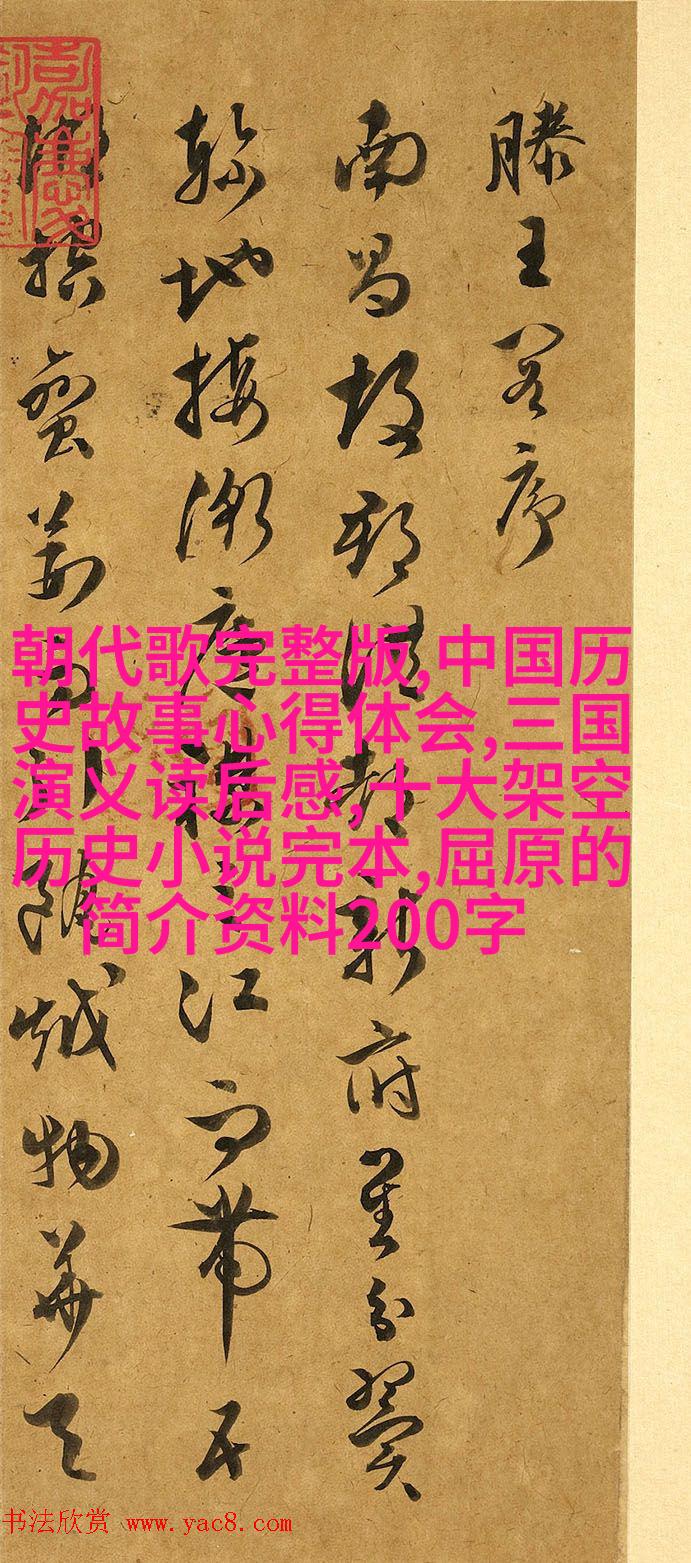 滕王閣序
南昌故郡洪都新府星分翼
軫地接衡廬襟三江而帶五
湖控蠻荊而引甌越物華天
朝代歌完整版,中国历
史故事心得体会,三国
演义读后感,十大架空
历史小说完本,屈原的
简介资料200字
书法欣赏 www.yac8.com